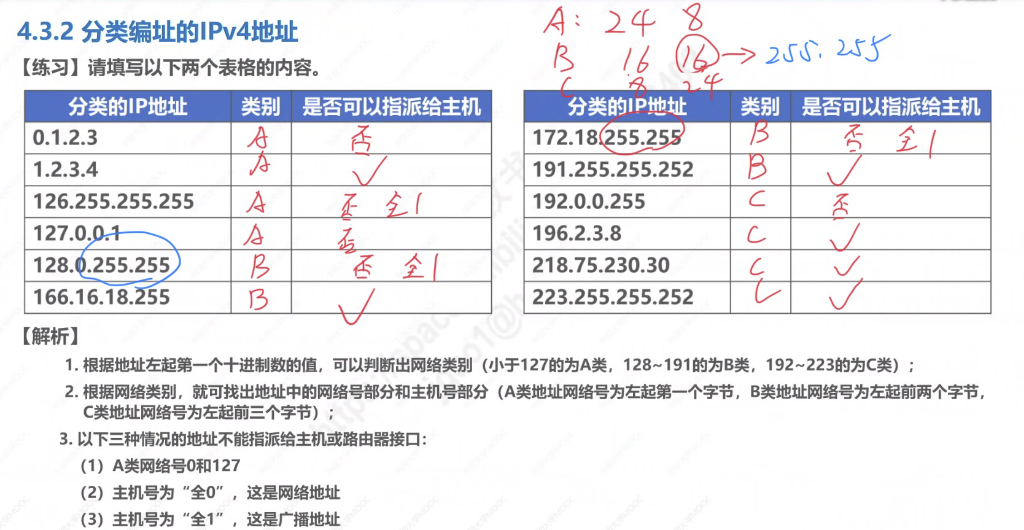 4.3.2 分类编址的IPv4地址
A: 24 8
B 16 16 → 255.255
C 8 24
【练习】请填写以下两个表格的内容。
分类的IP地址 类别 是否可以指派给主机
0.1.2.3 A 否
1.2.3.4 A ✓
126.255.255.255 A 否 全1
127.0.0.1 A 否
128.0.255.255 B 否 全1
166.16.18.255 B ✓
分类的IP地址 类别 是否可以指派给主机
172.18.255.255 B 否 全1
191.255.255.252 B ✓
192.0.0.255 C 否
196.2.3.8 C ✓
218.75.230.30 C ✓
223.255.255.252 C ✓
【解析】
1. 根据地址左起第一个十进制数的值，可以判断出网络类别（小于127的为A类，128~191的为B类，192~223的为C类）；
2. 根据网络类别，就可找出地址中的网络号部分和主机号部分（A类地址网络号为左起第一个字节，B类地址网络号为左起前两个字节，
C类地址网络号为左起前三个字节）；
3. 以下三种情况的地址不能指派给主机或路由器接口：
（1）A类网络号0和127
（2）主机号为“全0”，这是网络地址
（3）主机号为“全1”，这是广播地址